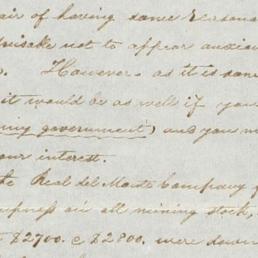 air of having some reason
not to appear anxious
However, as it is some
it would be as well if you
government) and you
our interest.
the Real del Monte Company
on all mining stock,
$2700. @ $2800. were down